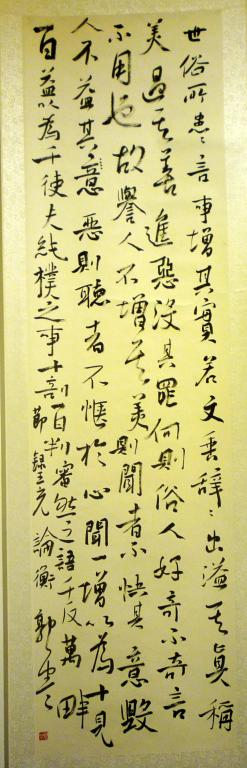 世俗所患〻言事增其實著文垂辭〻出溢其真稱
美過其善進惡沒其罪何則俗人好奇不奇言
不用也故譽人不增其美則聞者不快其意毀
人不益其意惡則聽者不愜於心聞一增以為十見
百益以為千使夫純樸之事十剖百判審然之語千反萬畔
節錄王充論衡 郭